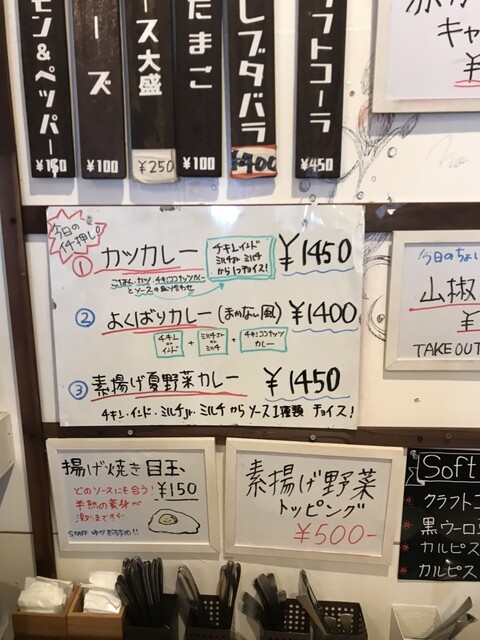 モン&ペッパー
¥150
ーズ
¥100
ース大盛
¥250
たまご
¥100
レブタバラ
¥400
フトコーラ
¥450
キャ
今日の
イチ押し。
① カツカレー
チキン、インド
ミルチJr ミルチ
から1つチョイス!
¥1450
ごはん・カツ・チキンココナッツカレー
とソースの盛り合わせ
② よくばりカレー(まかない風) ¥1400
チキン
or
インド
+
ミルチJr
or
ミルチ
+
チキンココナッツ
カレー
③ 素揚げ夏野菜カレー ¥1450
チキン・インド・ミルチJr・ミルチから ソース1種類 チョイス!
今日のちょい
山椒
¥
TAKEOUT
揚げ焼き目玉、
どのソースにも合う! ¥150
半熟の黄身が
激うまです☆
STAFF おすすめ!!
素揚げ野菜
トッピング
¥500-
Soft
クラフトコ
黒ウーロ
カルピス
カルピス